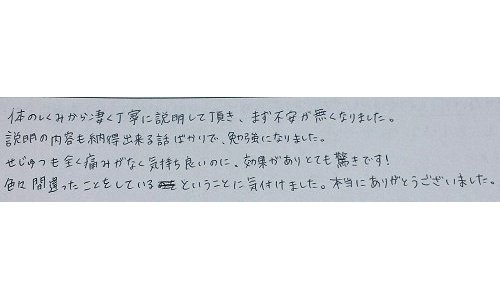 体のしくみから凄く丁寧に説明して頂き、まず不安が無くなりました。
説明の内容も納得出来る話ばかりで、勉強になりました。
せじゅつも全く痛みがなく気持ち良いのに、効果がありとても驚きです!
色々間違ったことをしているということに気付けました。本当にありがとうございました。